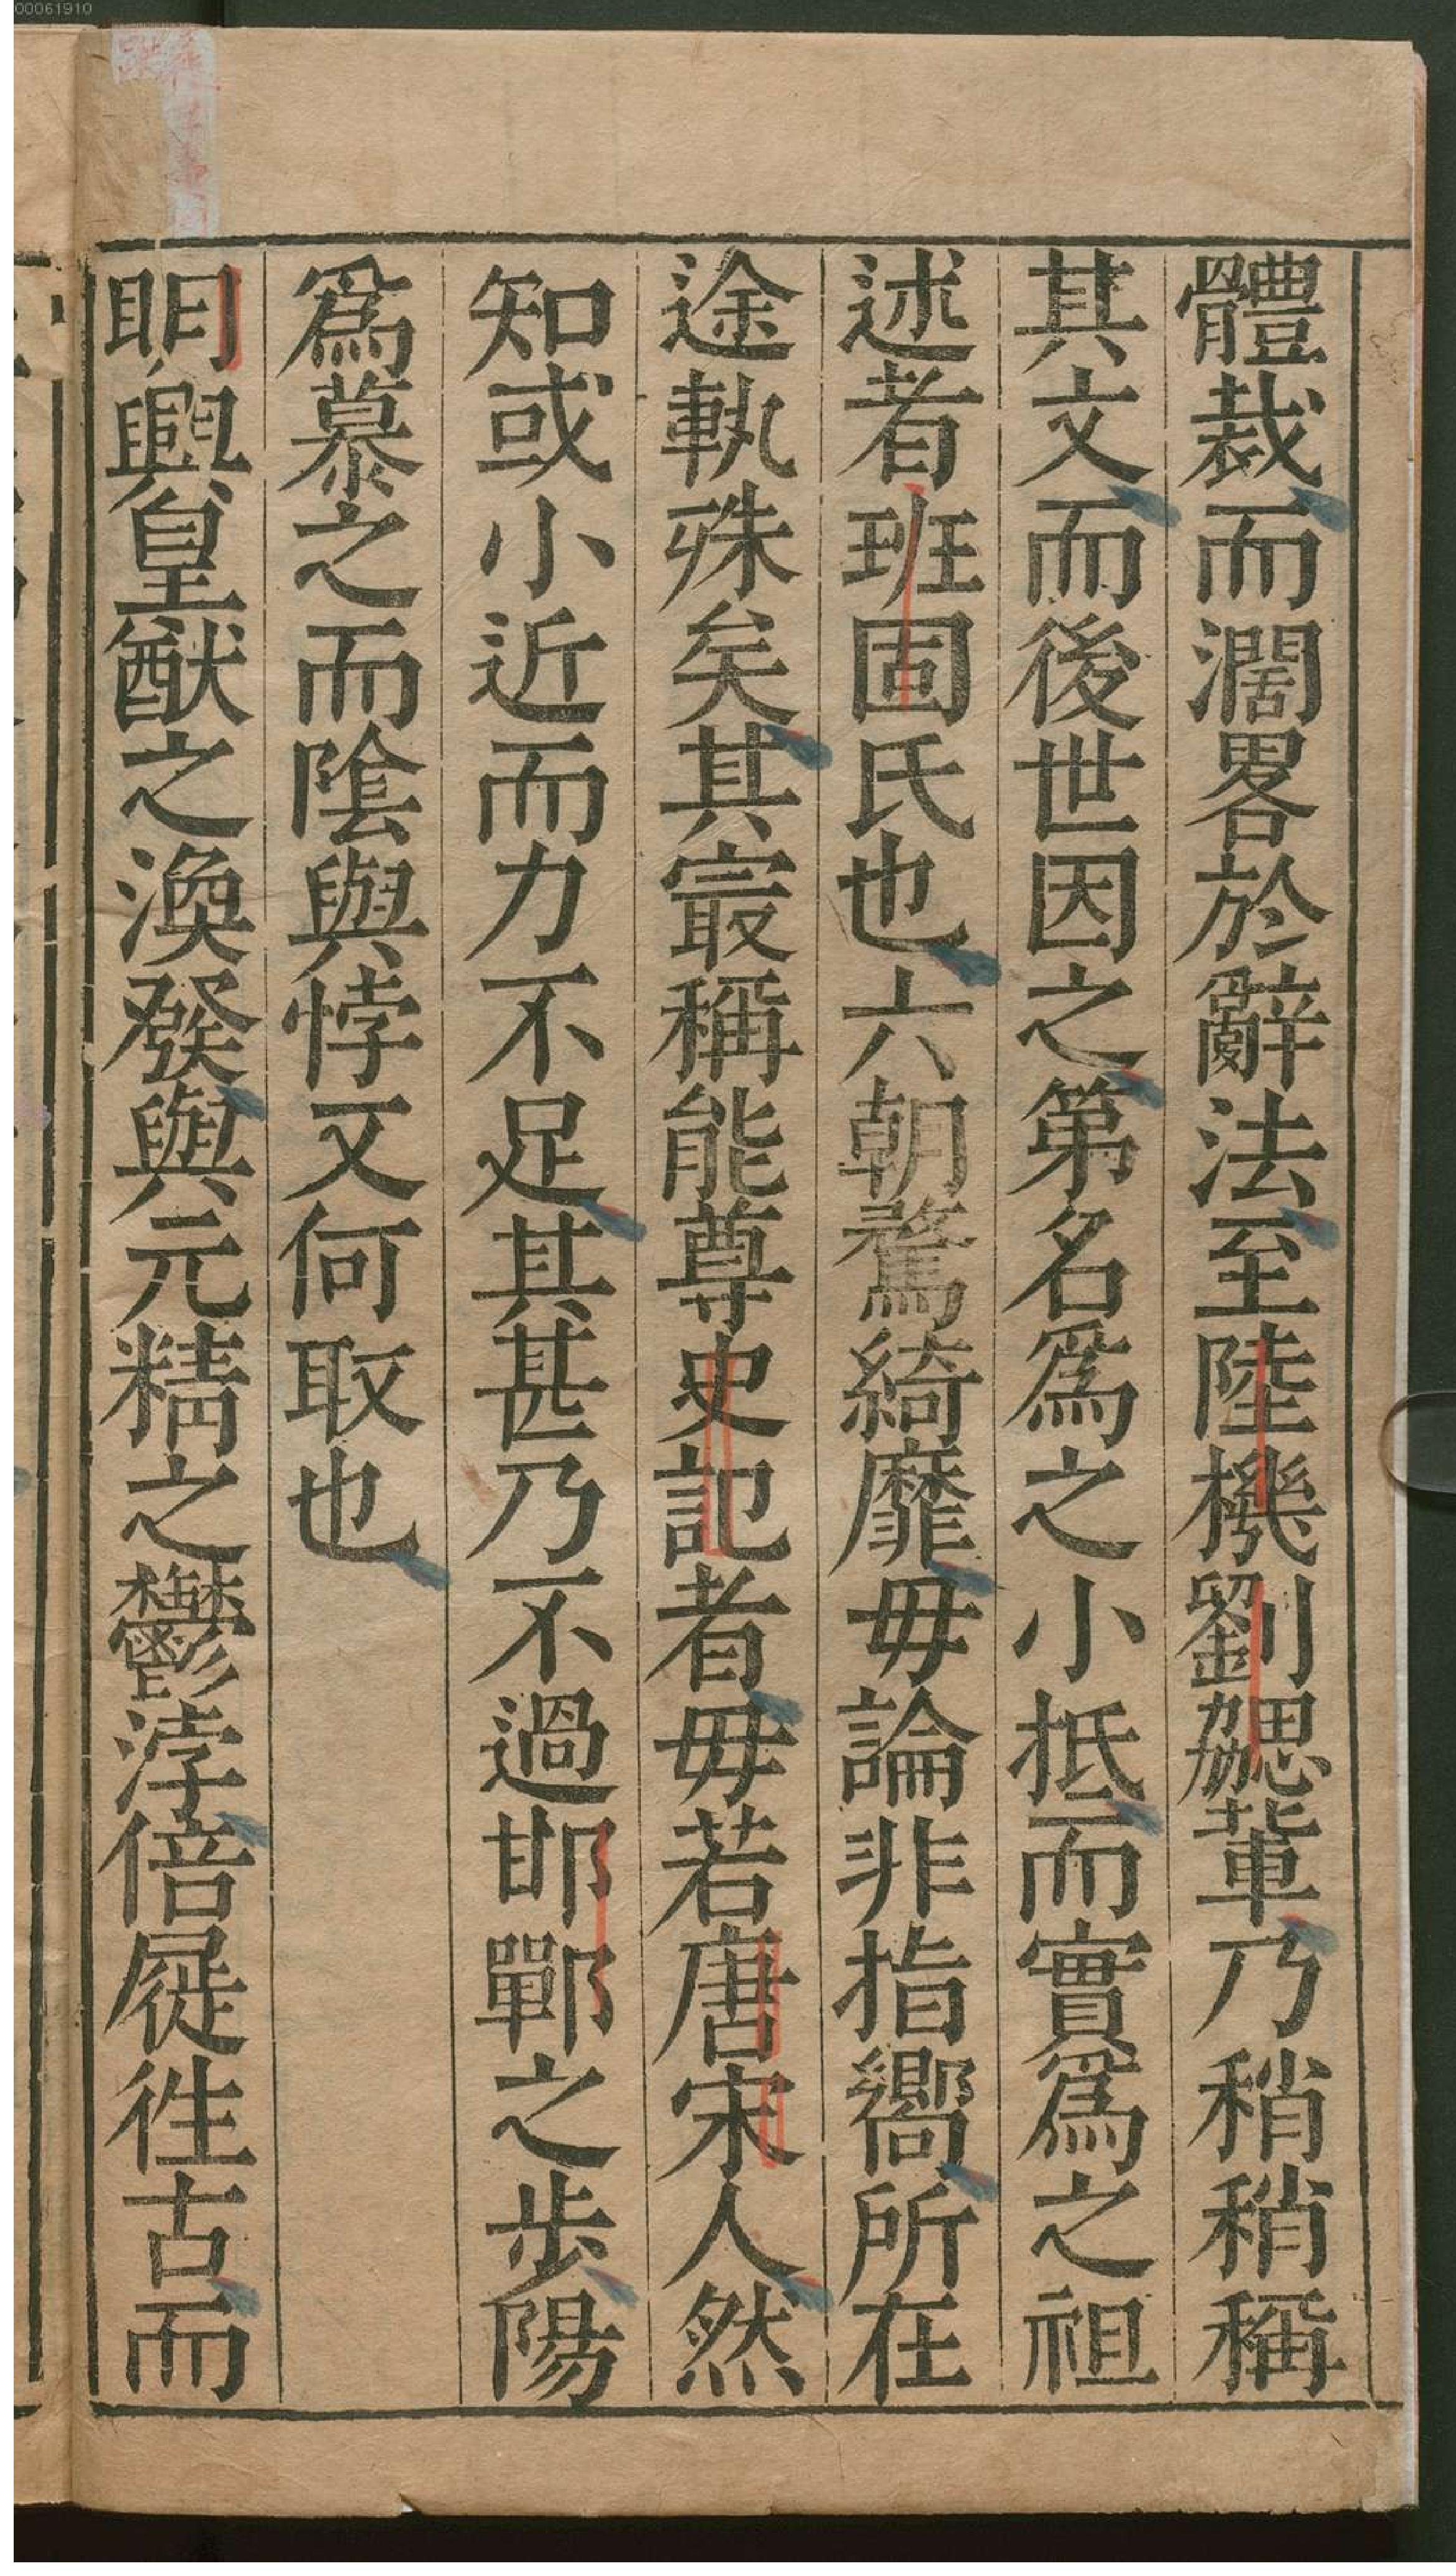 00061910
體裁而濶畧於辭法至陸機劉勰輩乃稍稍稱
其文而後世因之第名爲之小抵而實爲之祖
述者班固氏也六朝騖綺靡毋論非指嚮所在
途執殊矣其㝡稱能尊史記者毋若唐宋人然
知或小近而力不足其甚乃不過邯鄲之步陽
爲慕之而陰與悖又何取也
明興皇猷之渙發與元精之鬱浡倍屣徃古而